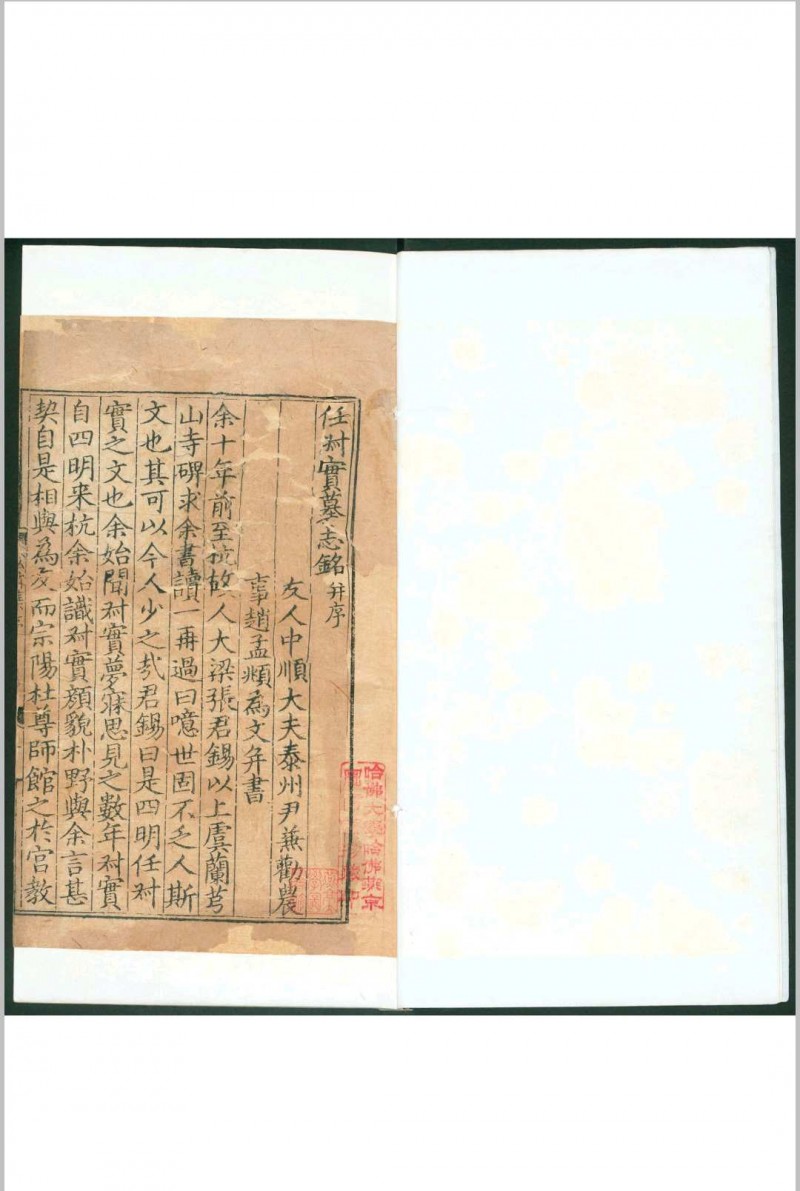 任叔實墓志銘并序
友人中順大夫泰州尹兼勸農
事趙孟頫為文并書
余十年前至杭故人大梁張君錫以上虞蘭芎
山寺碑求余書讀一再過曰噫世固不乏人斯
文也其可以今人少之㢤君錫曰是四明任叔
實之文也余始聞叔實夢寐思見之數年叔實
自四明来杭余始識叔實顔貌朴野與余言甚
契自是相與為友而宗陽杜尊師館之於宮教
哈佛大學哈佛燕京